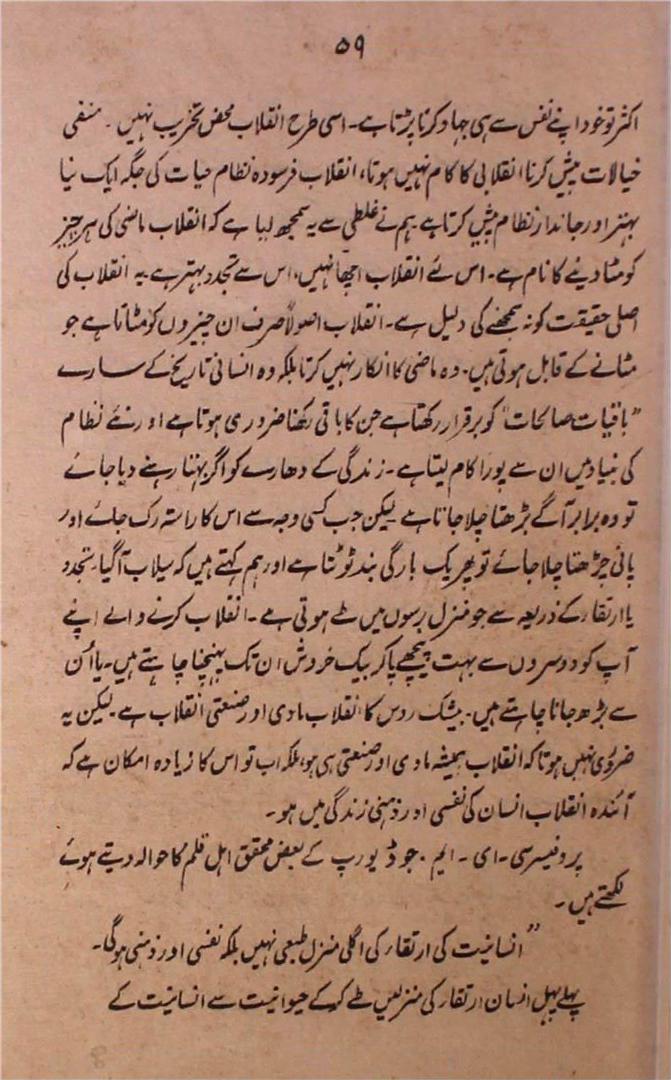 ۵۹
اکثر تو خود اپنے نفس سے ہی جہاد کرنا پڑتا ہے۔ اسی طرح انقلاب محض تخریب نہیں۔ منفی
خیالات پیش کرنا انقلابی کا کام نہیں ہوتا، انقلاب فرسودہ نظام حیات کی جگہ ایک نیا
بہتر اور جاندار نظام پیش کرتا ہے۔ ہم نے غلطی سے یہ سمجھ لیا ہے کہ انقلاب ماضی کی ہر چیز
کو مٹا دینے کا نام ہے۔ اس لئے انقلاب اچھا نہیں، اس سے تجدد بہتر ہے۔ یہ انقلاب کی
اصلی حقیقت کو نہ سمجھنے کی دلیل ہے۔ انقلاب اصولاً صرف ان چیزوں کو مٹاتا ہے جو
مٹانے کے قابل ہوتی ہیں۔ وہ ماضی کا انکار نہیں کرتا بلکہ وہ انسانی تاریخ کے سارے
”باقیات صالحات“ کو برقرار رکھتا ہے جن کا باقی رکھنا ضروری ہوتا ہے اور نئے نظام
کی بنیاد میں ان سے پورا کام لیتا ہے۔ زندگی کے دھارے کو اگر بہتا رہنے دیا جائے
تو وہ برابر آگے بڑھتا چلا جاتا ہے لیکن جب کسی وجہ سے اس کا راستہ رک جائے اور
پانی چڑھتا چلا جائے تو پھر یک بارگی بند ٹوٹتا ہے اور ہم کہتے ہیں کہ سیلاب آ گیا۔ تجدد
یا ارتقاء کے ذریعہ سے جو منزل برسوں میں طے ہوتی ہے۔ انقلاب کرنے والے اپنے
آپ کو دوسروں سے بہت پیچھے پا کر بیک خروش ان تک پہنچنا چاہتے ہیں۔ یا اُن
سے بڑھ جانا چاہتے ہیں۔ بیشک روس کا انقلاب مادی اور صنعتی انقلاب ہے۔ لیکن یہ
ضروری نہیں ہوتا کہ انقلاب ہمیشہ مادی اور صنعتی ہی ہو، بلکہ اب تو اس کا زیادہ امکان ہے کہ
آئندہ انقلاب انسان کی نفسی اور ذہنی زندگی میں ہو۔
پروفیسر سی۔ ای۔ ایم۔ جوڈ یورپ کے بعض محقق اہل قلم کا حوالہ دیتے ہوئے
لکھتے ہیں۔
”انسانیت کی ارتقاء کی اگلی منزل طبعی نہیں بلکہ نفسی اور ذہنی ہوگی۔
پہلے پہل انسان ارتقاء کی منزلیں طے کر کے حیوانیت سے انسانیت کے